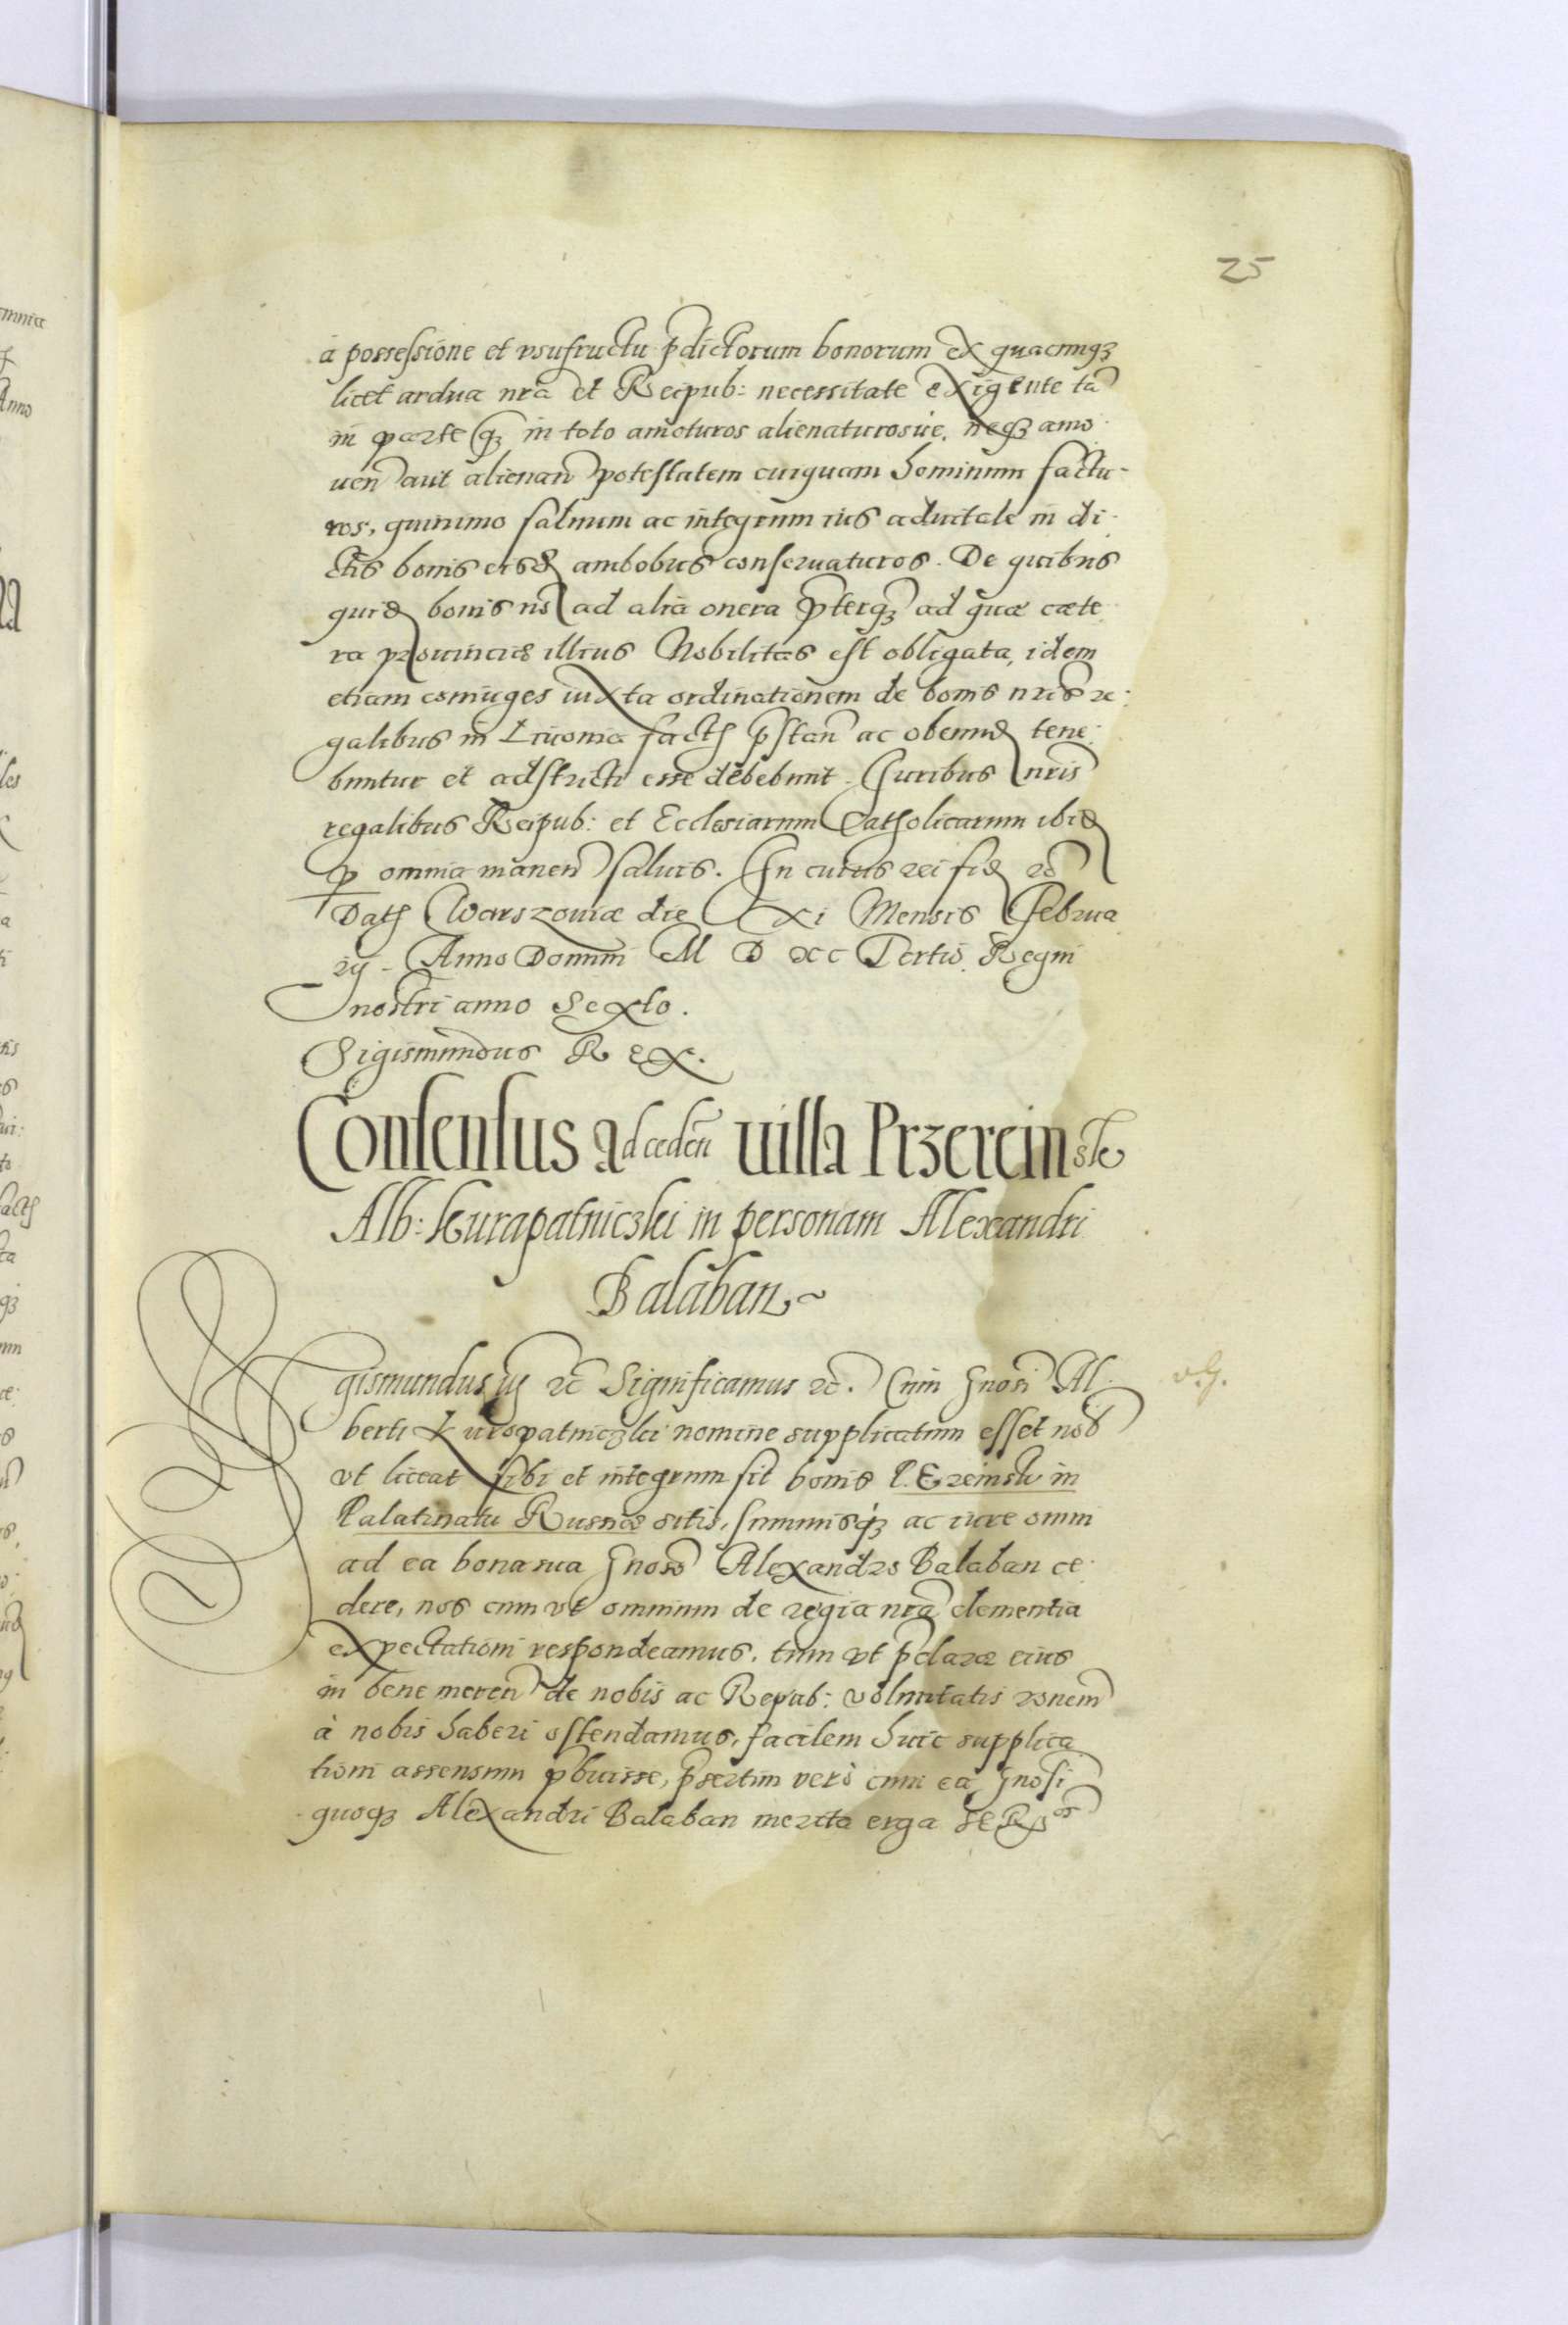 25
à possessione et vsufructu pdictorum bonorum ex quacunqꝫ
licet ardua nrã et Reipub: necessitate exigente tã
in parte qꝫ in toto amoturos alienaturosúe, neqꝫ amo
uen aut alienan potestatem cuiquam hominum factu-
ros, quinimo saluum ac integrum ius aduitale in di
ctis bonis eisd ambobus conseruaturos. De quibus
quid bonis ns ad alia onera pterqꝫ ad quæ cæte
ra prouinciæ illius Nobilitas est obligata, idem
etiam coniuges iuxta ordinationem de bonis nris re:
galibus in Liuonia fact pstan ac obeund tene:
buntur et adstricti esse debebunt. Iuribus nris
regalibus Reipub: et Ecclesiarum Catholicarum ibid
p omnia manen saluis. In cuius rei fid rc
Dat Warszouiæ die XI Mensis Februa
rij - Anno Domini M D XC Tertio. Regni
nostri anno Sexto.
Sigismundus Rex.
Consensus ad ceden uilla Przerein ste
Alb: Kurapatniczki in personam Alexandri
Balaban
gismundus iij rc Significamus rc. Cum Gnosi Al
berti Kuropatniczki nomine supplicatum esset nob
vt liceat sibi et integrum sit bonis P. Ereinste in
Palatinatu Russiæ sitis, summisqꝫ ac iure omni
ad ea bona sua Gnoso Alexandro Balaban ce
dere, nos cum vt omnium de regia nrã clementia
expectationi respondeamus, tum vt pclaræ eius
in bene meren de nobis ac Repub: voluntatis ronem
à nobis haberi ostendamus, facilem huic supplica
tioni assensum pbuisse, psertim verò cum ea Gnosi
quoqꝫ Alexandri Balaban merita erga